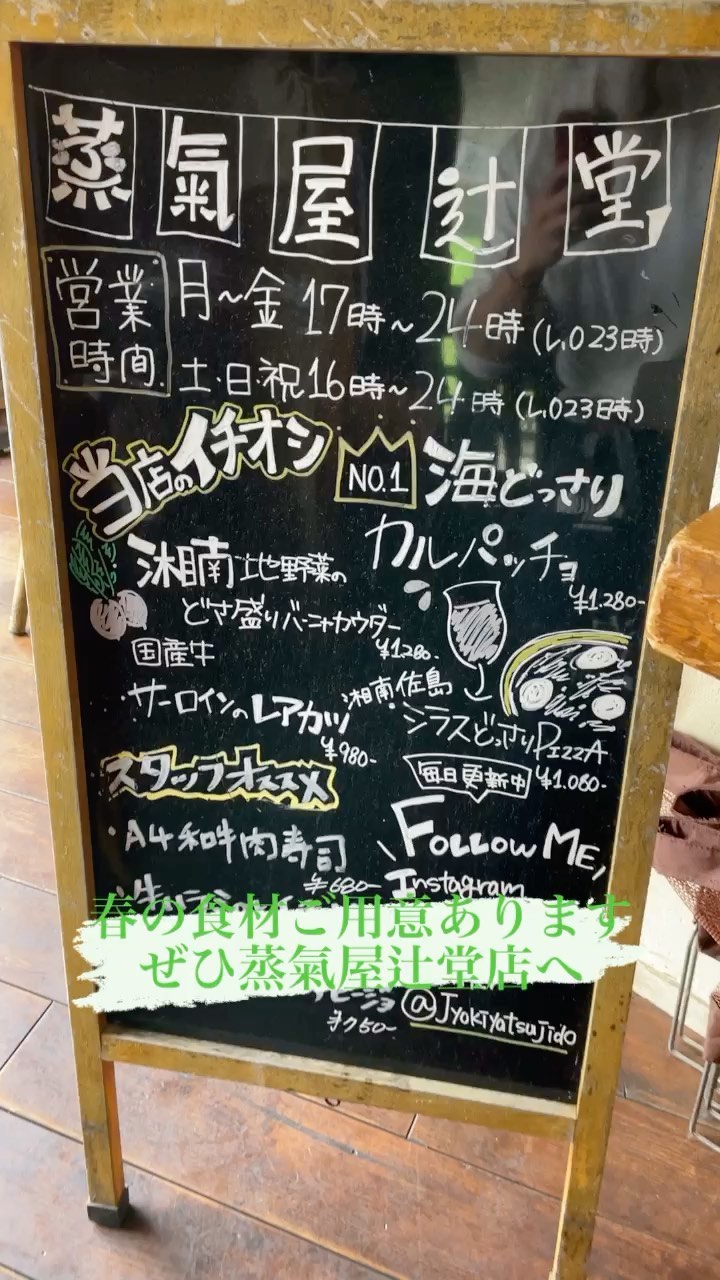 蒸氣屋辻堂
営業時間
月～金 17時～24時 (L.O23時)
土・日・祝16時～24時 (L.O23時)
当店のイチオシ
NO.1 海どっさり
カルパッチョ
¥1.280-
湘南地野菜の
どさ盛りバーニャカウダー
¥1.280-
国産牛
サーロインのレアカツ
¥980-
湘南佐島
シラスどっさりPIZZA
¥1.080-
スタッフオススメ
・A4和牛肉寿司
¥680-
毎日更新中
FOLLOW ME,
Instagram
@Jyokiyatsujido
春の食材ご用意あります
ぜひ蒸氣屋辻堂店へ
¥750-